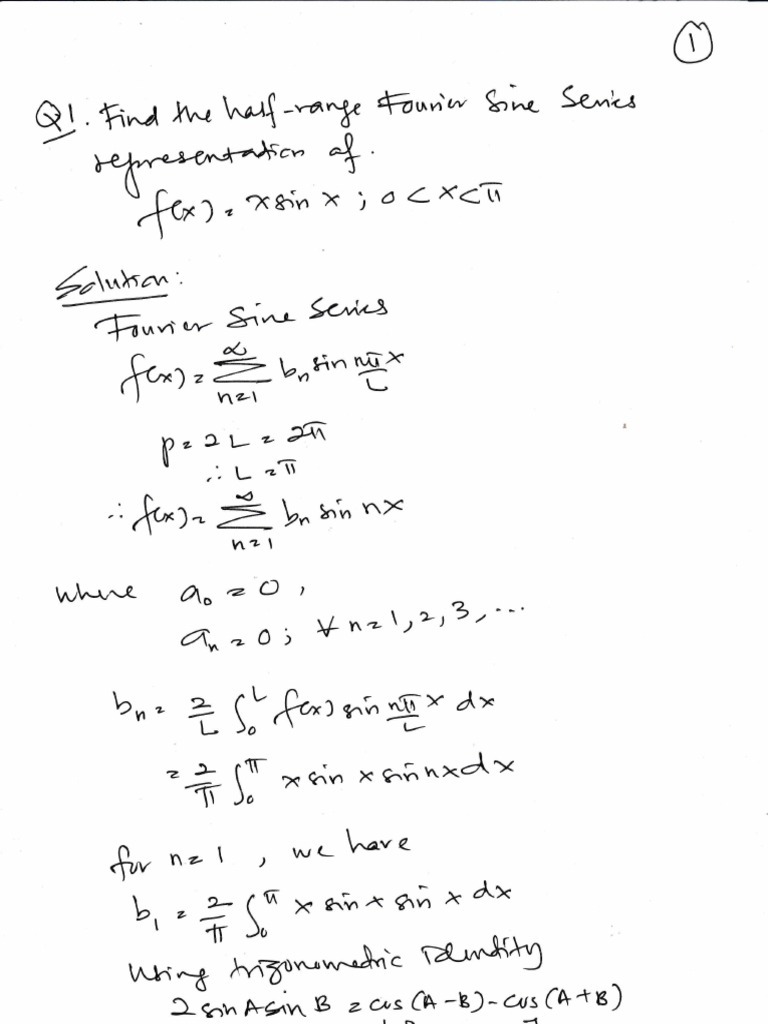 1
Q1. Find the half-range Fourier Sine Series
representation of.
f(x) = x sin x ; 0 < x < π
Solution:
Fourier Sine Series
f(x) = ∑_{n=1}^{∞} bₙ sin nπ/L x
p = 2L = 2π
∴ L = π
∴ f(x) = ∑_{n=1}^{∞} bₙ sin nx
where a₀ = 0 ,
aₙ = 0 ; ∀ n = 1, 2, 3, ...
bₙ = 2/L ∫₀^L f(x) sin nπ/L x dx
= 2/π ∫₀^π x sin x sin nx dx
for n = 1 , we have
b₁ = 2/π ∫₀^π x sin x sin x dx
Using trigonometric Identity
2 sin A sin B = cos (A - B) - cos (A + B)